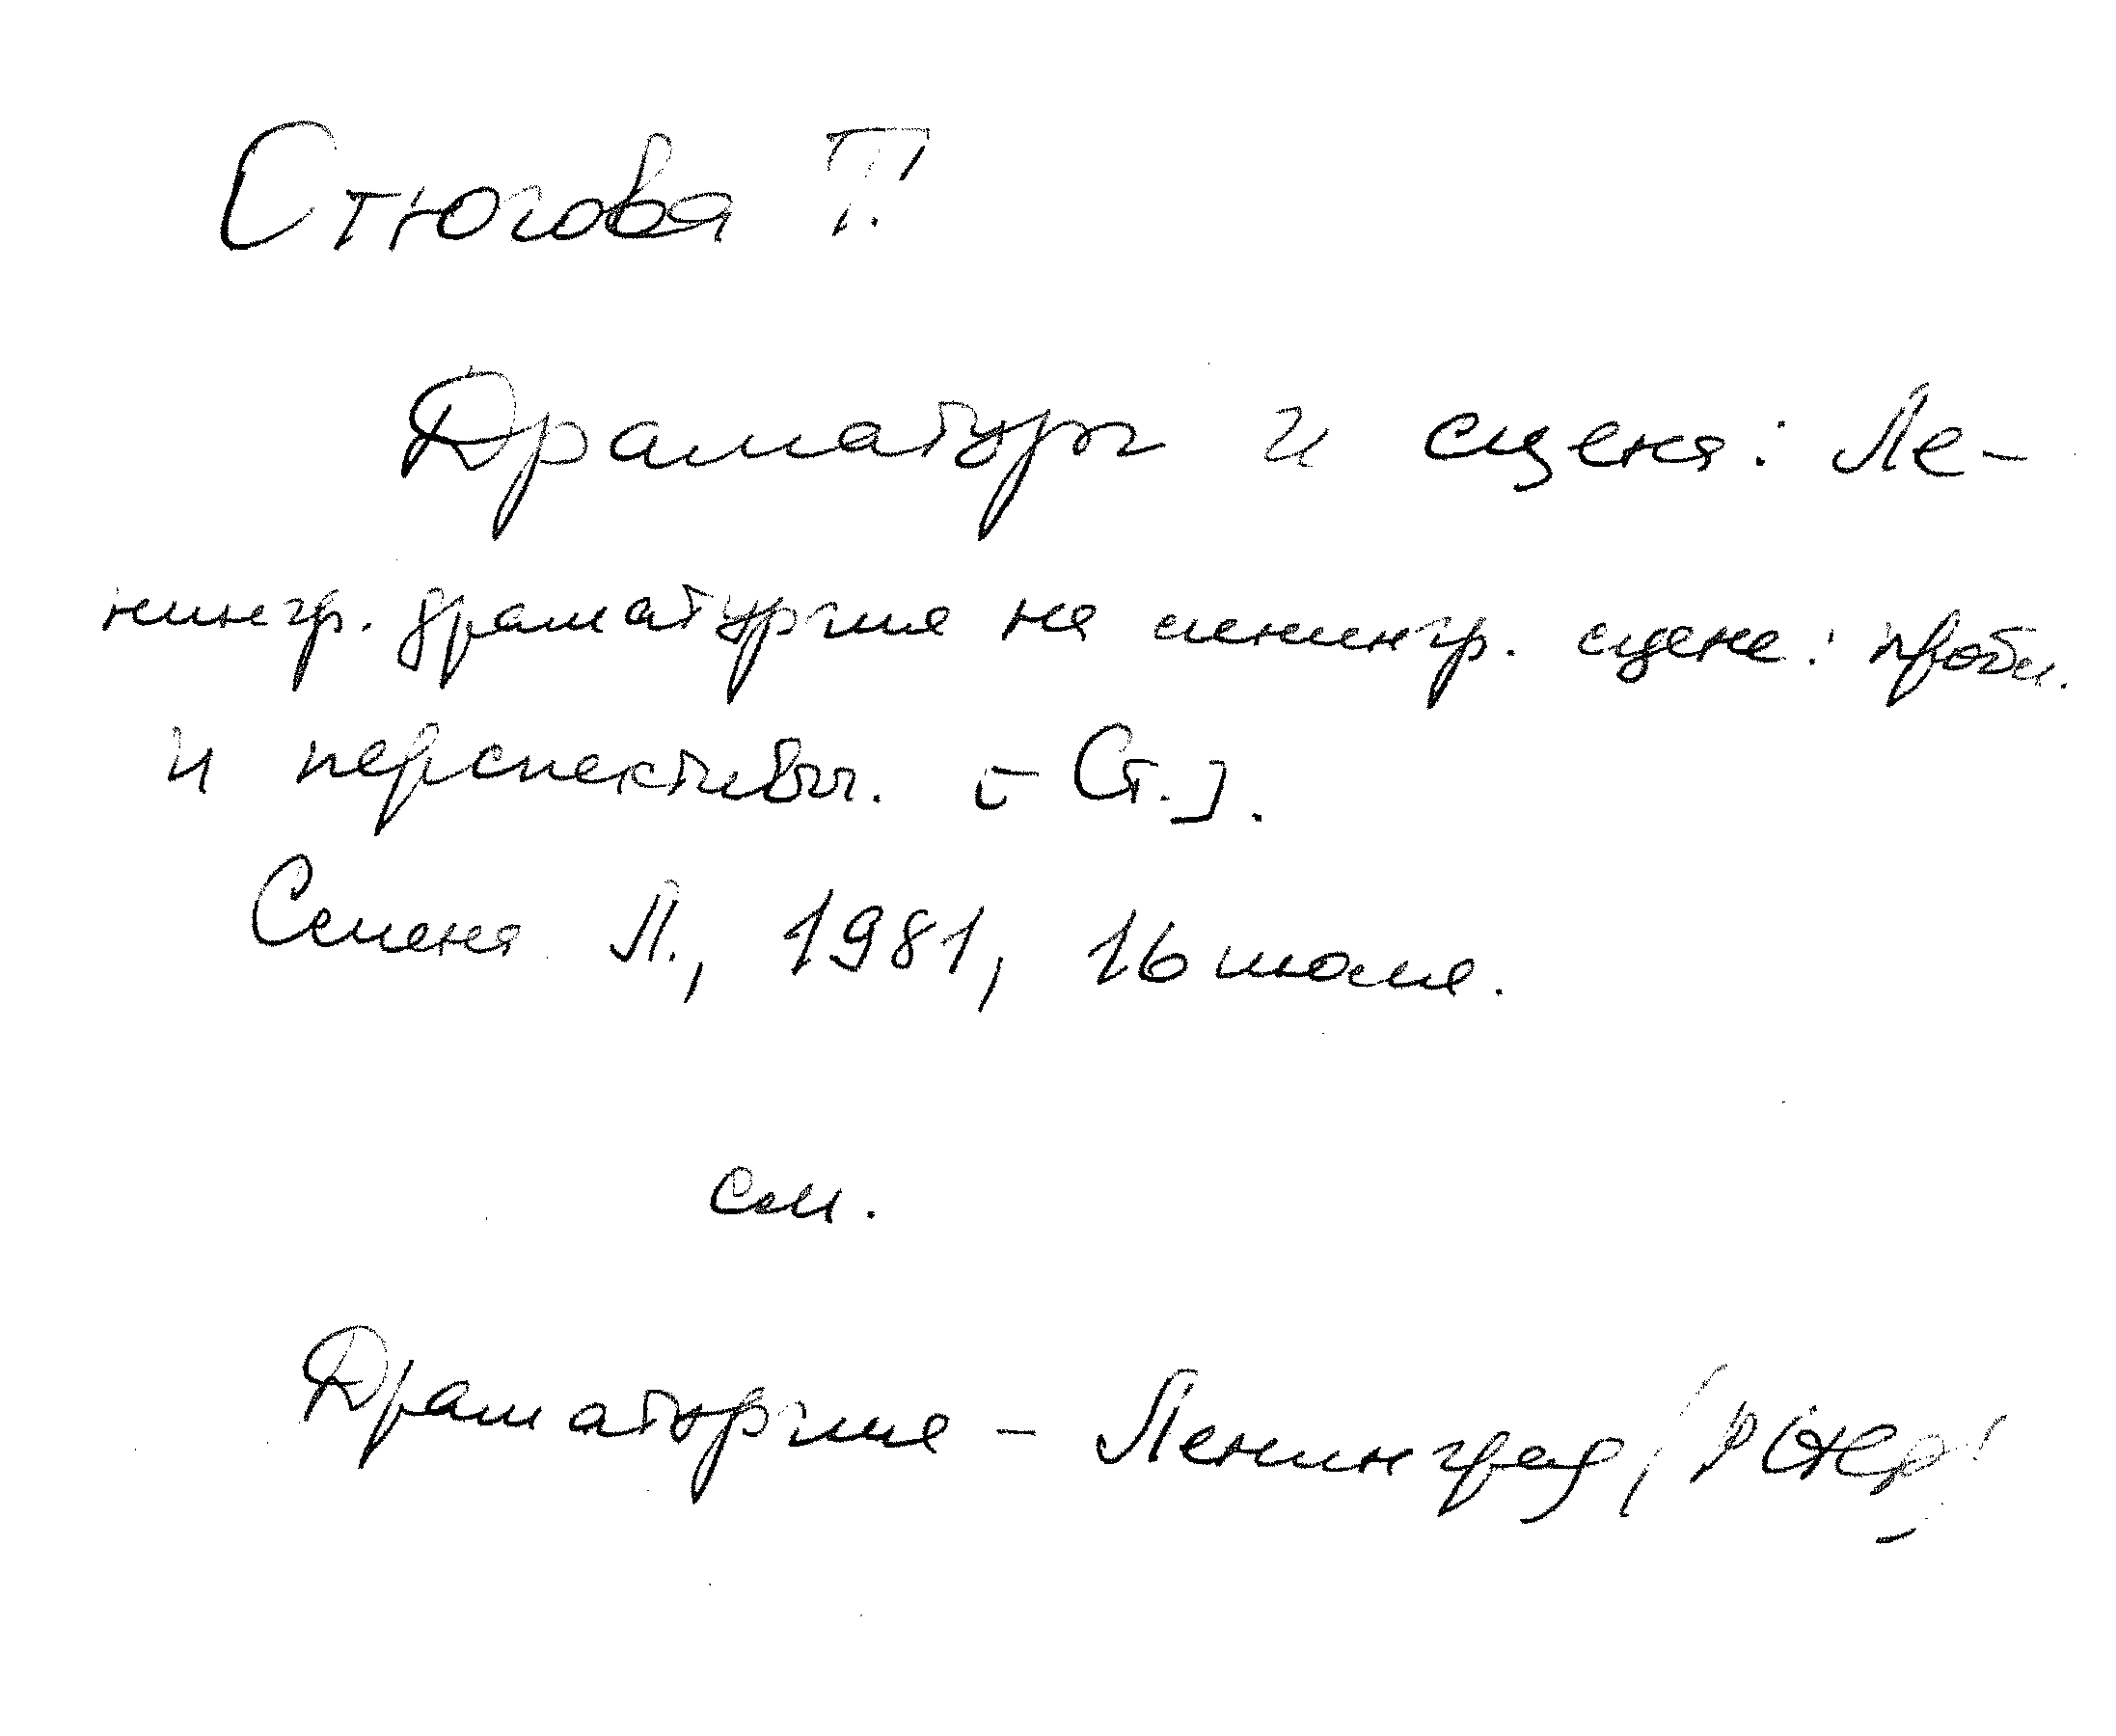 Стюгова Т.
Драматург и сцена: Ле-
нингр. драматургия на ленингр. сцене: пробл.
и перспективы. [Ст.].
Смена Л., 1981, 16 июля.
см.
Драматургия - Ленинград